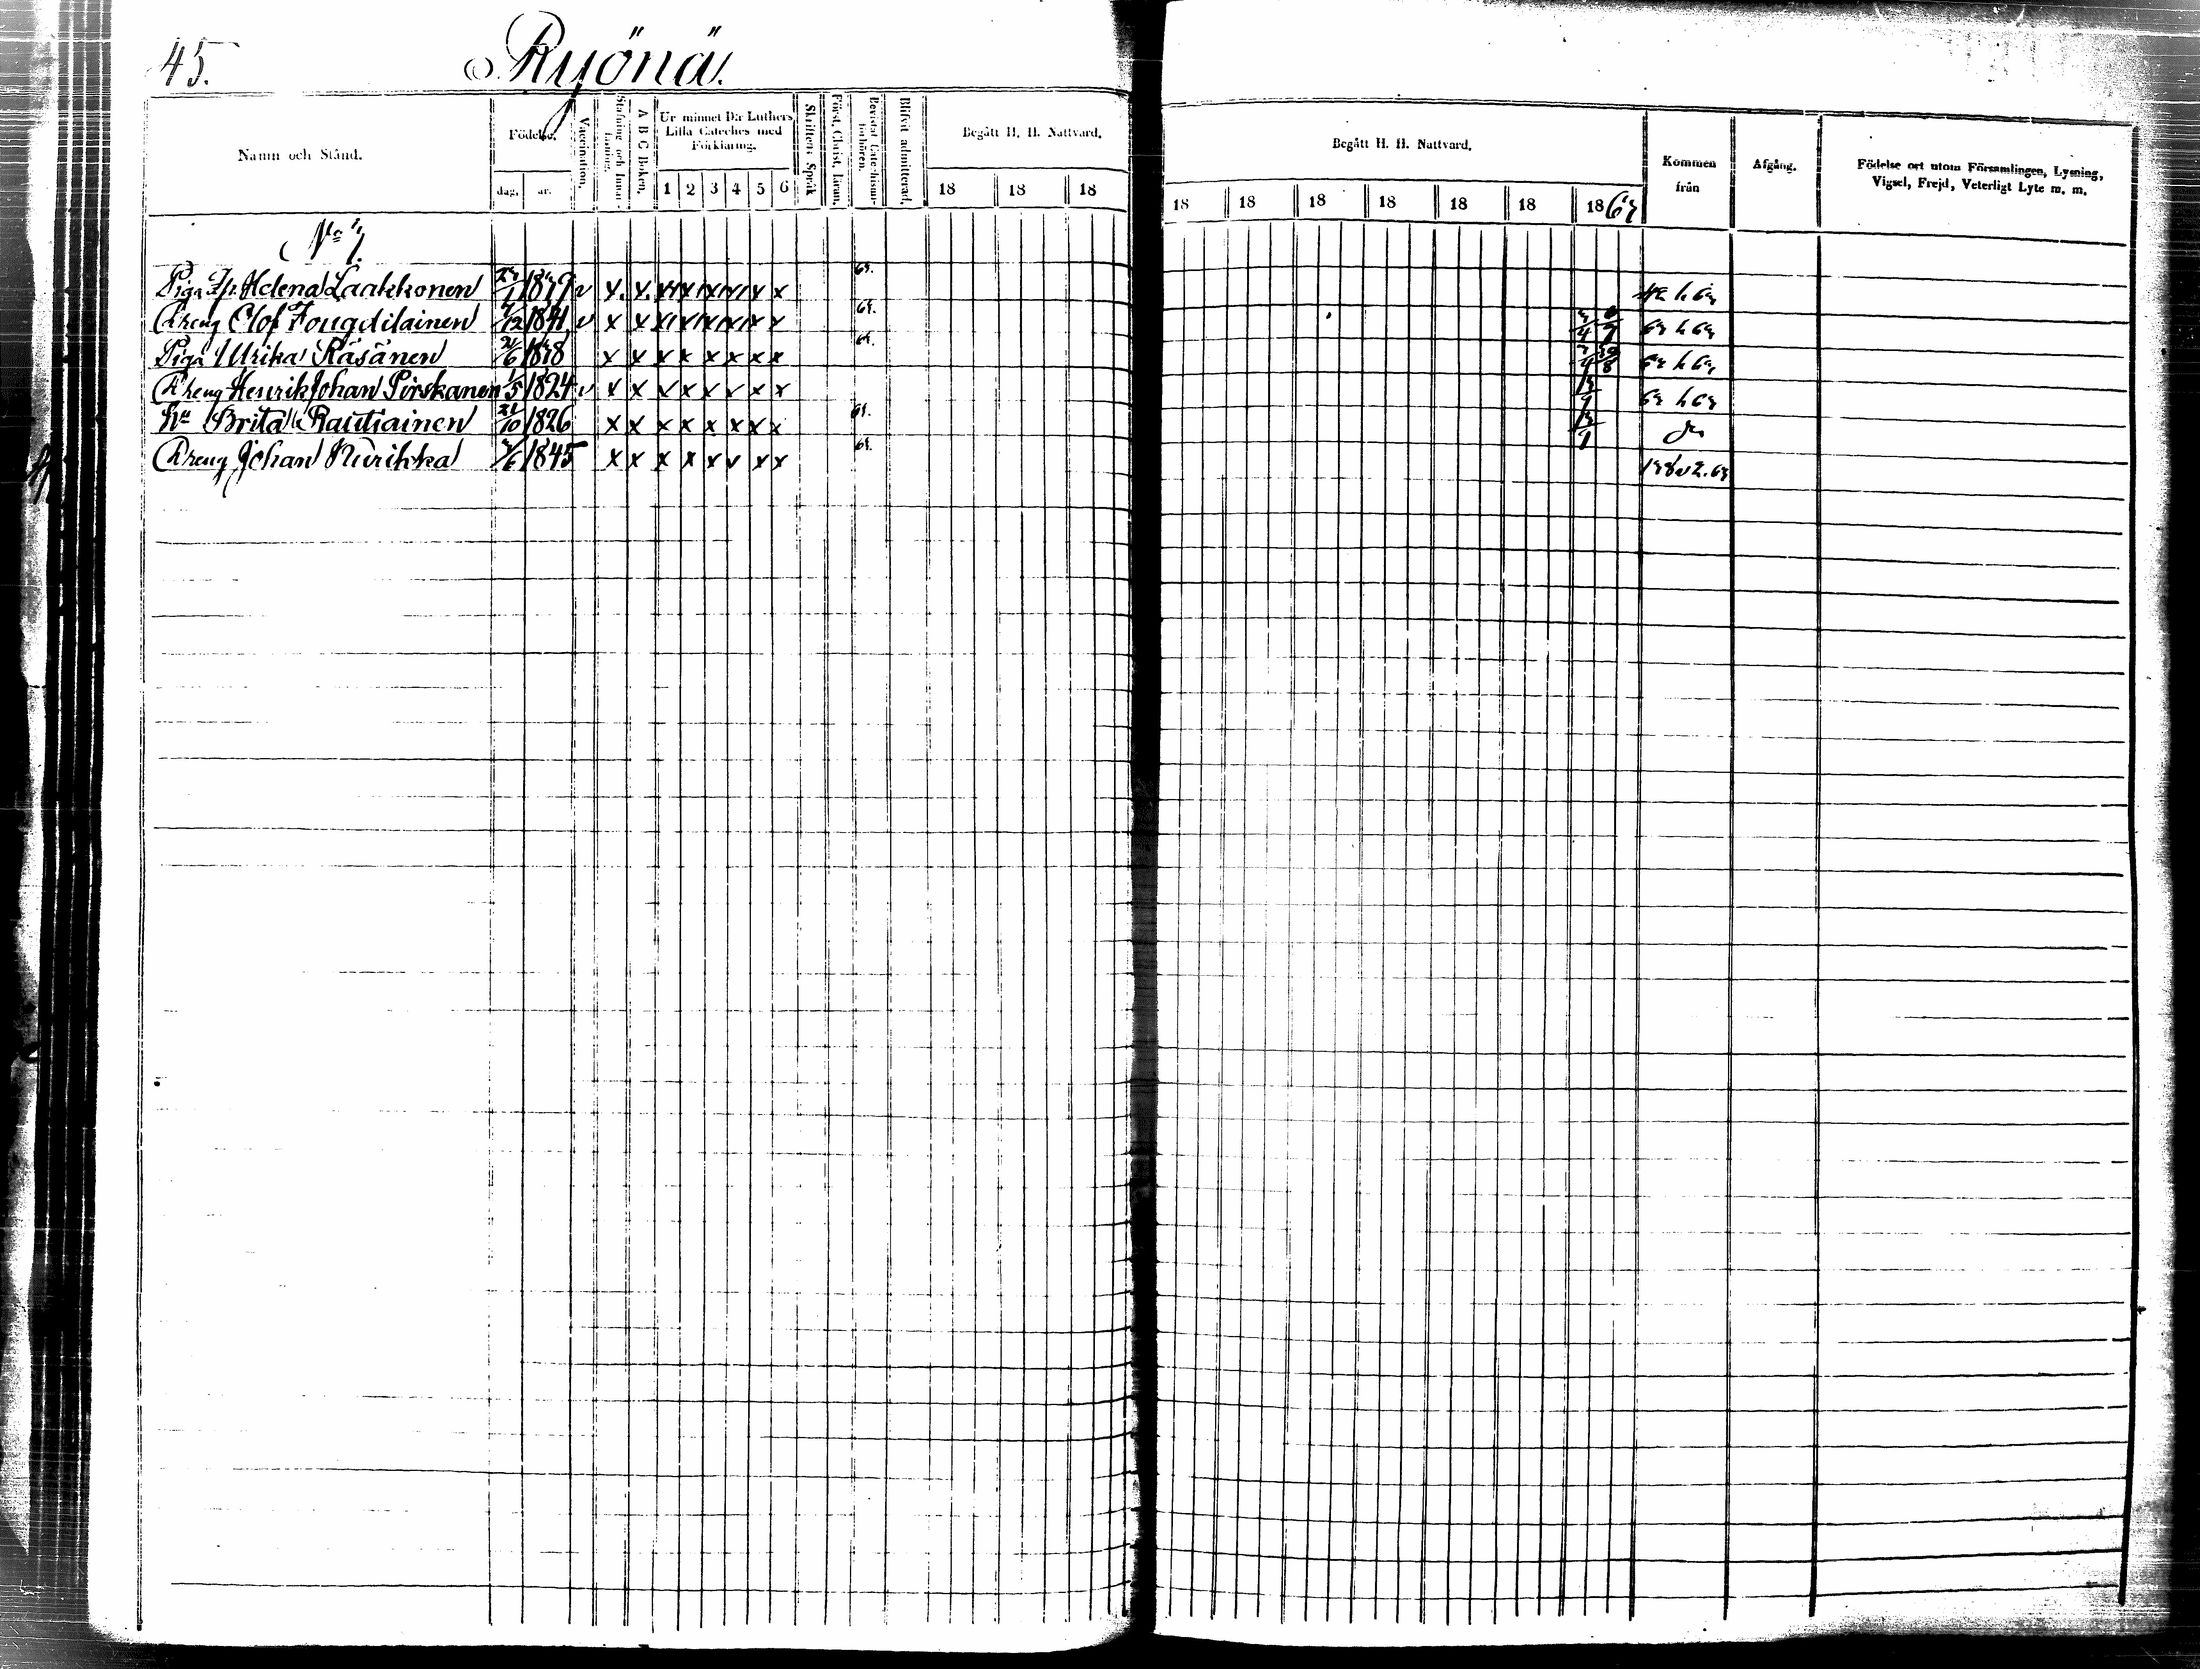 45.
Ryönä.
Namn och Stånd.
Födelse.
dag. år.
Vaccination.
Stafning och Innanläsning.
A B C Boken.
Ur minnet D:r Luthers Lilla Cateches med Förklaring.
1 2 3 4 5 6
Skriftens Språk
Först. Christ. läran.
Bevistat Catechismiförhören.
Blifvit admitterad.
Begått H. H. Nattvard.
18 18 18
Begått H. H. Nattvard.
18 18 18 18 18 18 1867
Kommen från
Afgång.
Födelse ort utom Församlingen, Lysning, Vigsel, Frejd, Veterligt Lyte m. m.
No 7.
Piga Helena Laakkonen v x. x. x x x x x x
Dreng Olof Fougdilainen /12 1841 v x x x x x x x x 67 h 67
Piga Ulrika Räsänen /6 x x x x x x x x 67 h 67
Dreng Henrik Johan Pirskanen 1/5 1824 v x x x x x x x x 67 h 67
Hu Brita Rautiainen 21/10 1826 x x x x x x x x
Dreng Johan Kurikka /6 1845 x x x x x x x x